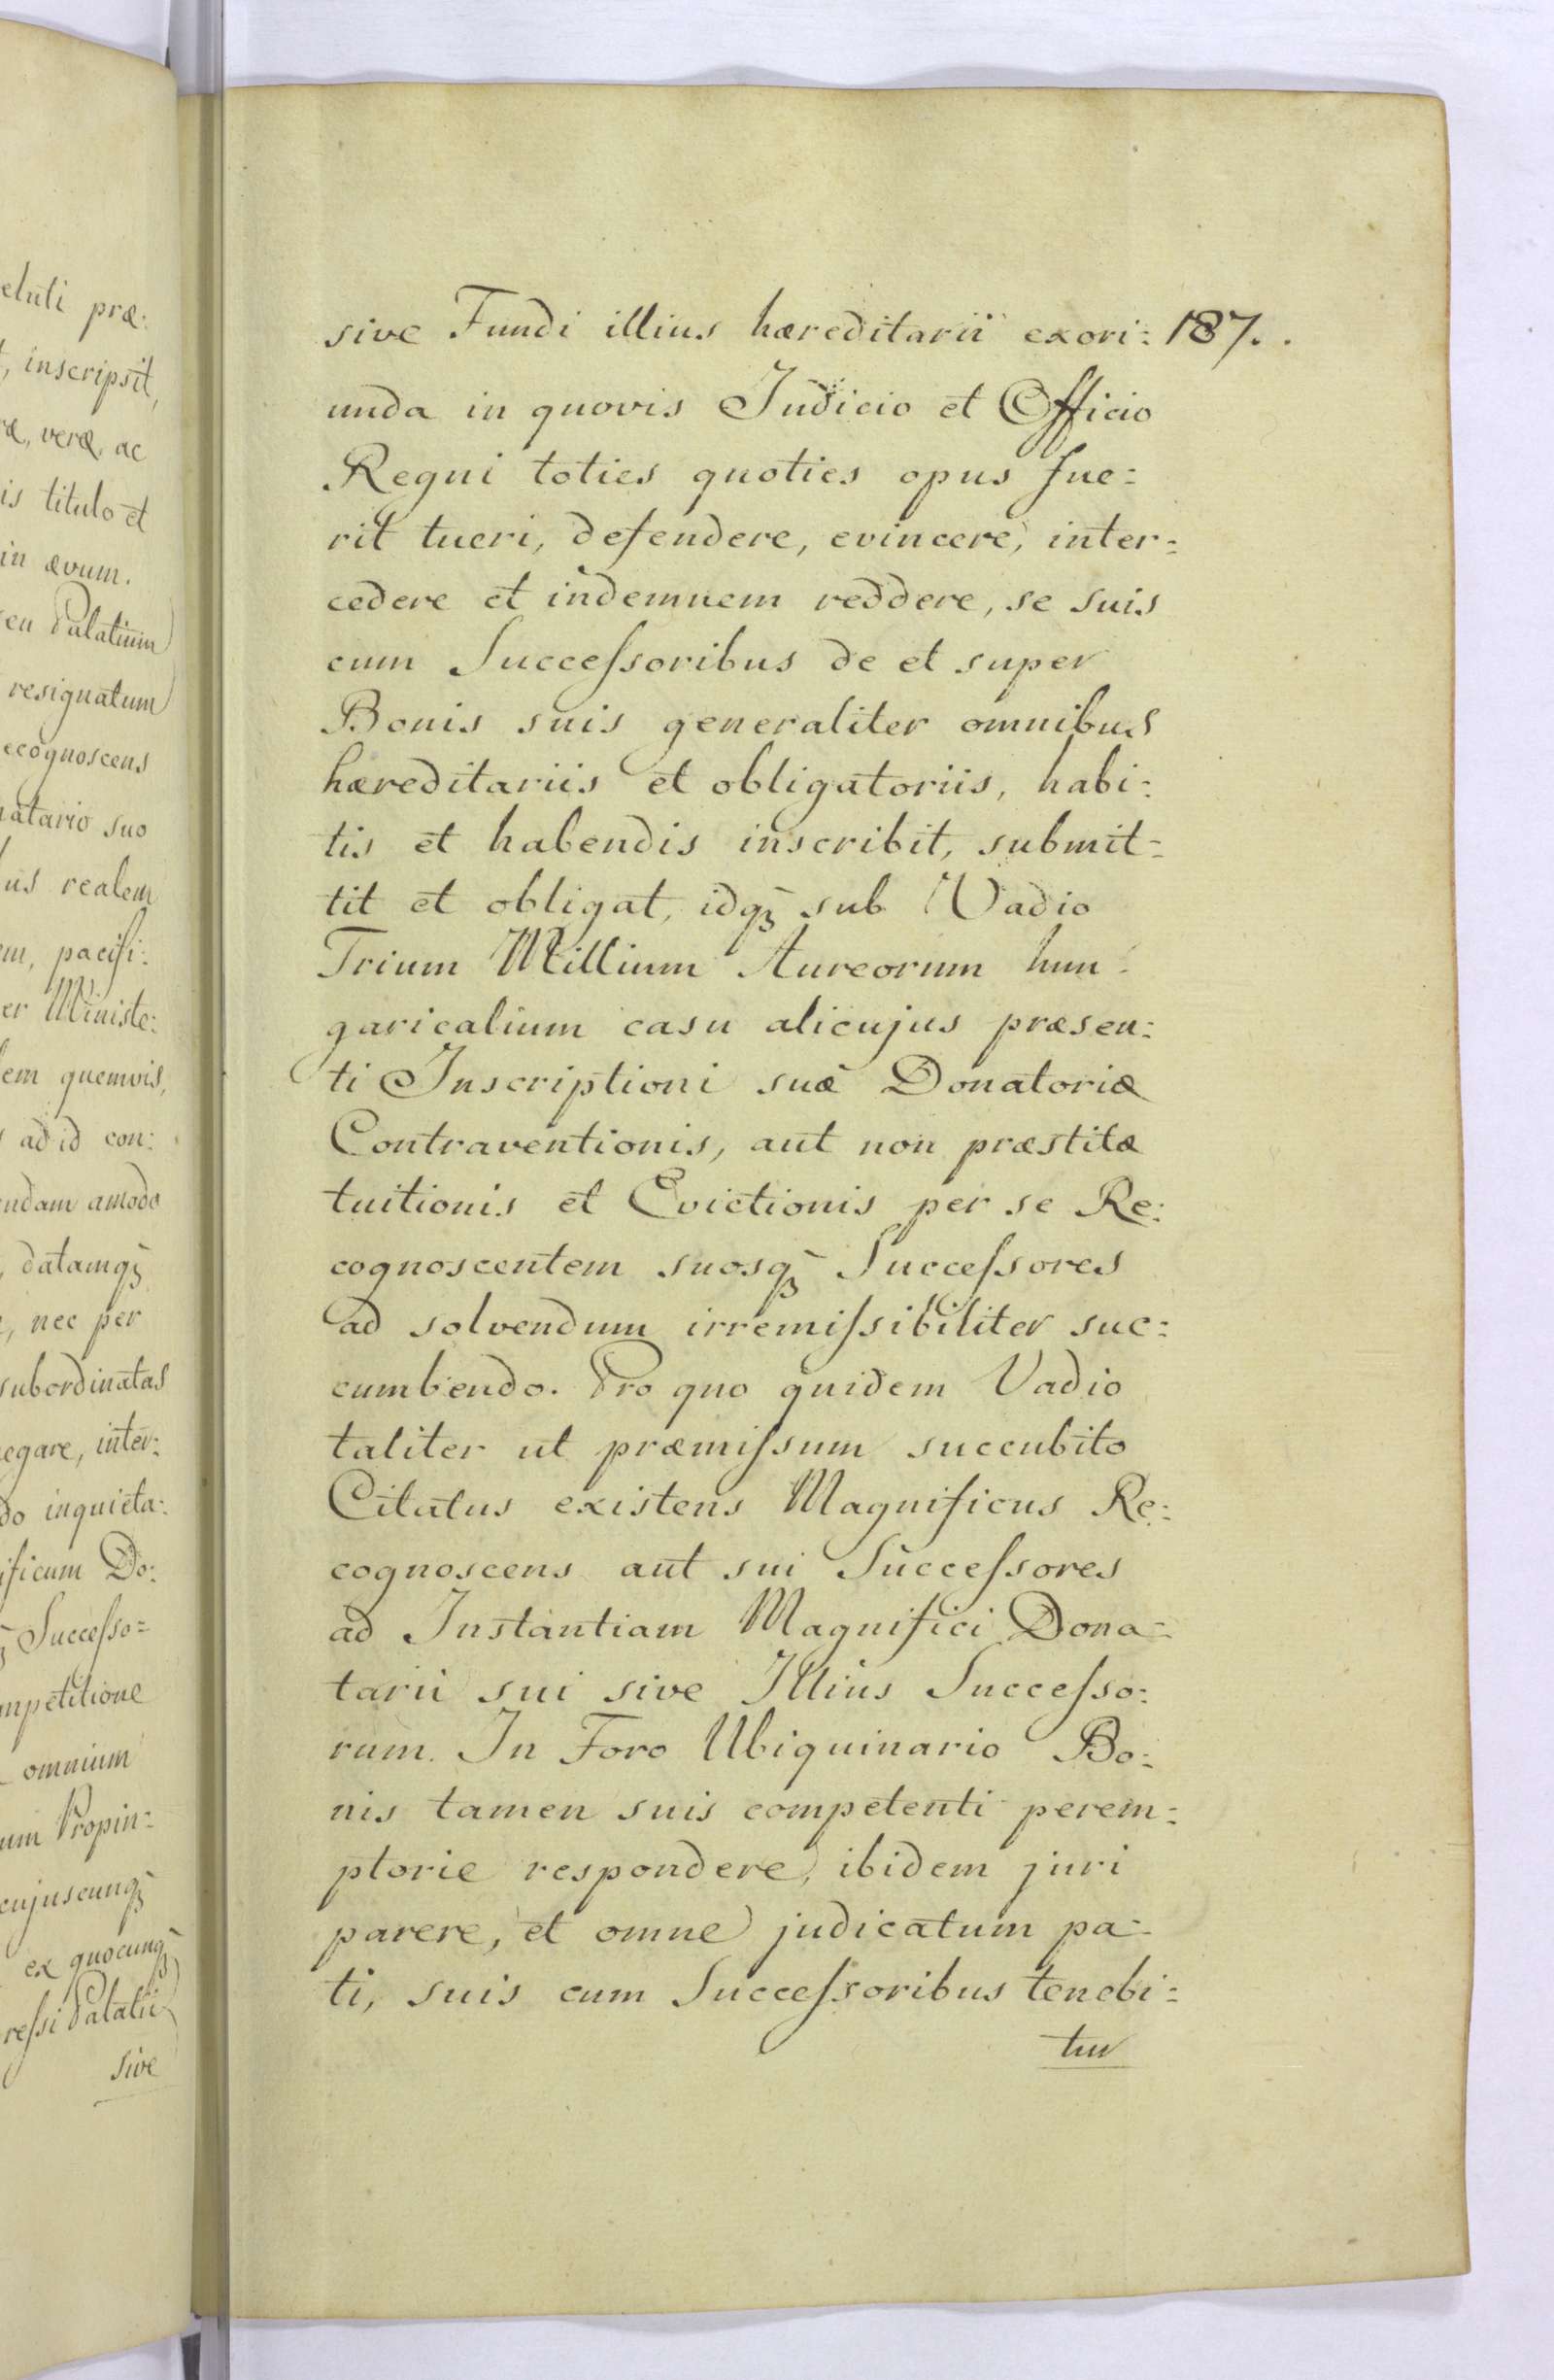 eluti præ:
inscripsit,
veræ, ac
is titulo et
in ævum.
Palatium
resignatum
ecognoscens
natario suo
us realem
em, pacifi:
er Ministe:
em quemvis,
ad id con:
endam amodo
, datamqꝫ
, nec per
subordinatas
egare, inter:
do inquieta:
ificum Do:
Successo=
mpetitione
omnium
um Propin=
cujuscunqꝫ
ex quocunqꝫ
ressi Palatii
sive
sive Fundi illius hæreditarii exori: 187.
unda in quovis Judicio et Officio
Regni toties quoties opus fue:
rit tueri, defendere, evincere, inter:
cedere et indemnem reddere, se suis
cum Successoribus de et super
Bonis suis generaliter omnibus
hæreditariis et obligatoriis, habi:
tis et habendis inscribit, submit=
tit et obligat, idqꝫ sub Vadio
Trium Millium Aureorum hun:
garicalium casu alicujus præsen:
ti Inscriptioni suæ Donatoriæ
Contraventionis, aut non præstitæ
tuitionis et Evictionis per se Re:
cognoscentem suosqꝫ Successores
ad solvendum irremissibiliter suc:
cumbendo. Pro quo quidem Vadio
taliter ut præmissum succubito
Citatus existens Magnificus Re:
cognoscens aut sui Successores
ad Instantiam Magnifici Dona:
tarii sui sive Illius Successo:
rum. In Foro Ubiquinario Bo:
nis tamen suis competenti perem:
ptorie respondere, ibidem juri
parere, et omne judicatum pa:
ti, suis cum Successoribus tenebi:
tur